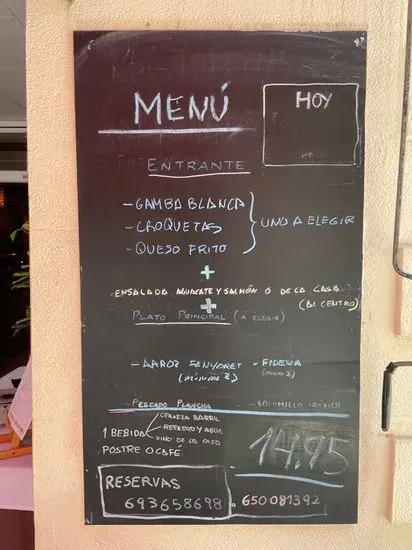 MENÚ
HOY
ENTRANTE
- GAMBA BLANCA
- CROQUETAS
- QUESO FRITO
UNO A ELEGIR
+
- ENSALADA AGUACATE Y SALMÓN O DE LA CASA.
(AL CENTRO)
+
PLATO PRINCIPAL (A ELEGIR)
- ARROZ SENYORET - FIDEUA
(mínimo 2) (mínimo 2)
- PESCADO PLANCHA - SOLOMILLO IBÉRICO
1 BEBIDA
CERVEZA BARRIL
REFRESCO Y AGUA
VINO DE LA CASA
POSTRE O CAFÉ
14.95
RESERVAS
693658698. 650081392